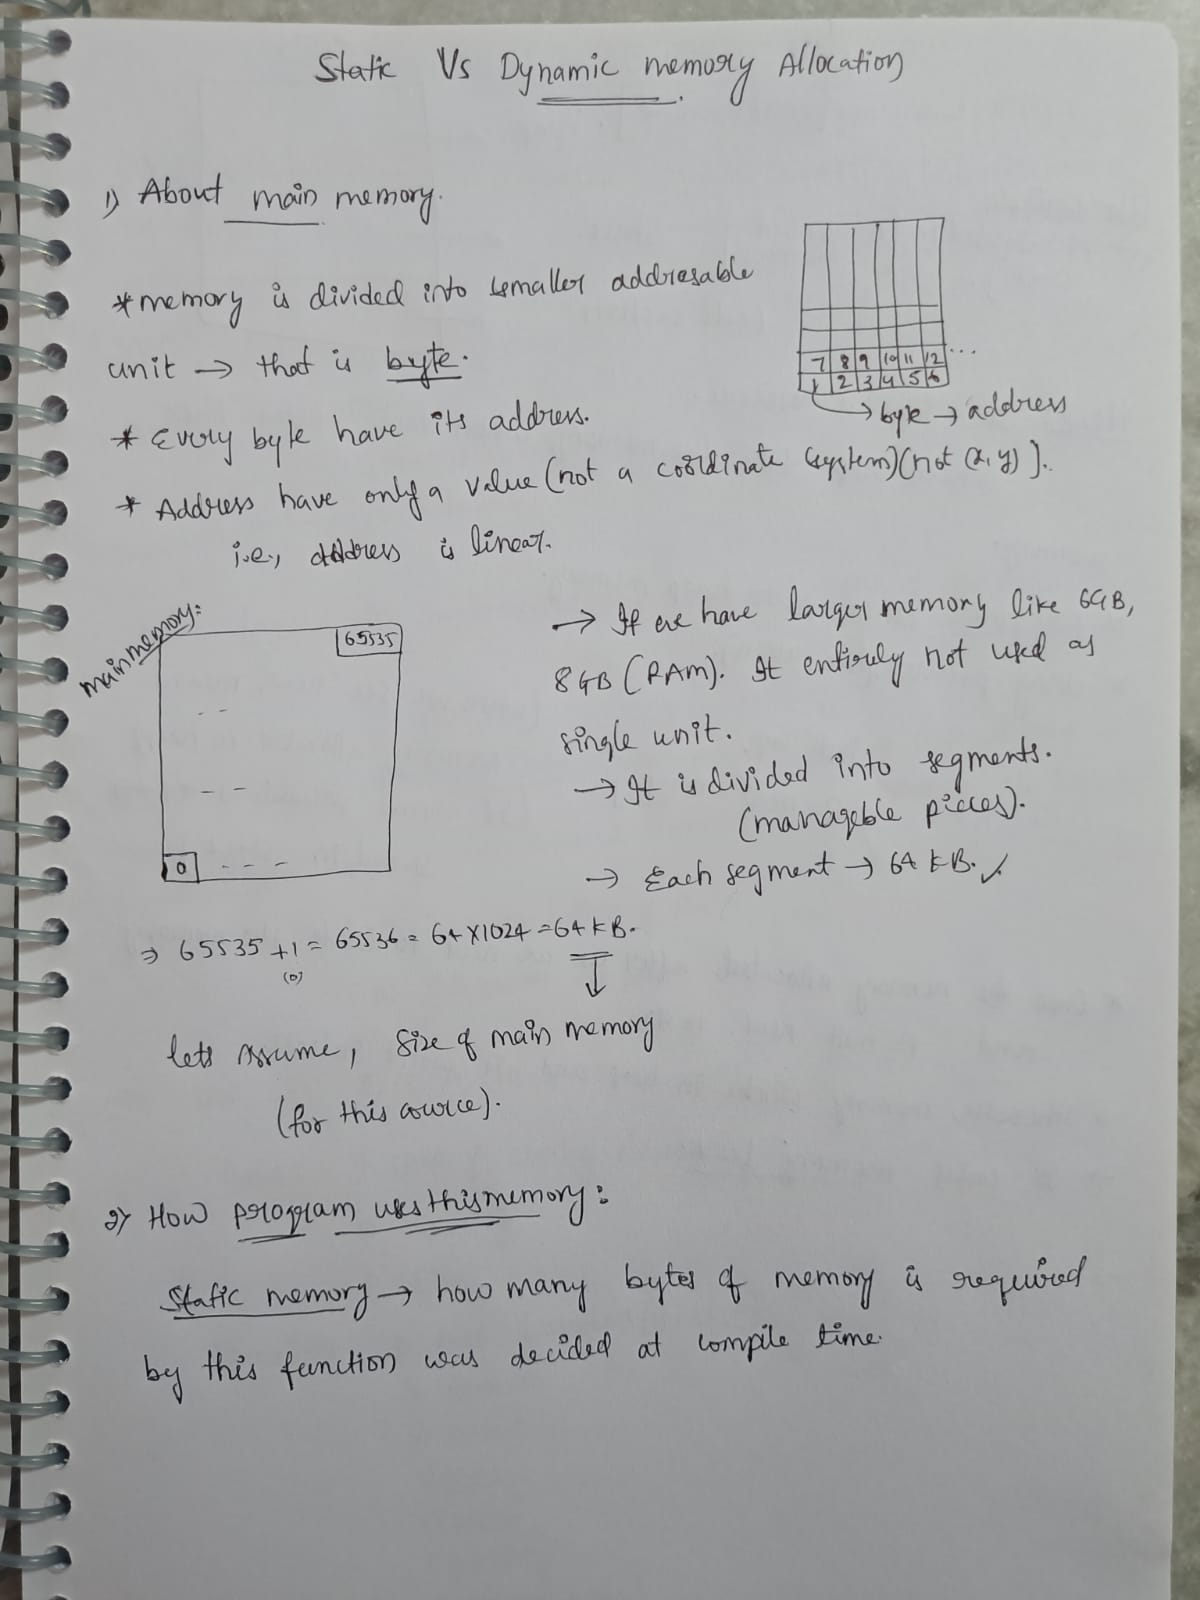 Static Vs Dynamic memory Allocation
1) About main memory.
* memory is divided into smaller addresable
unit → that is byte.
7 8 9 10 11 12 ...
1 2 3 4 5 6
→ byte → address
* Every byte have its address.
* Address have only a value (not a coordinate system)(not (x, y)).
i.e., address is linear.
main memory:
65535
0
→ If we have larger memory like 6GB,
8GB (RAM). It entirely not used as
single unit.
→ It is divided into segments.
(managable pieces).
→ Each segment → 64 KB. ✓
⇒ 65535 + 1 = 65536 = 64 X 1024 = 64 KB.
(0)
↓
lets assume, size of main memory
(for this cource).
2) How program uses this memory:
Static memory → how many bytes of memory is required
by this function was decided at compile time.